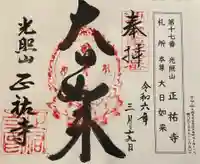 第十七番 光照山 正祐寺
札所 本尊 大日如来
奉拝
令和六年
三月十六日
大日如来
光照山
正祐寺